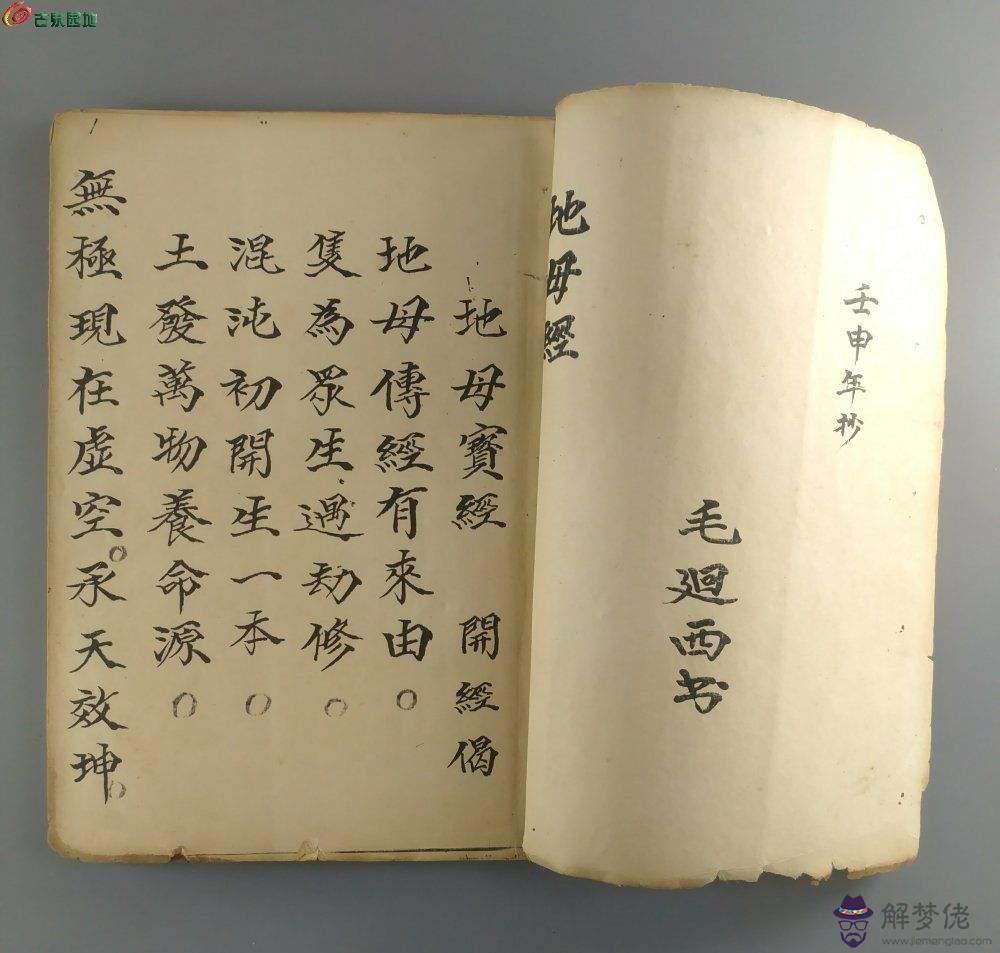 壬申年抄
毛廻西书
地母經
地母寶經 開經偈
地母傳經有來由○
隻為眾生遇劫修○
混沌初開生一本○
土發萬物養命源○
無極現在虛空。承天效坤。
1
古泉园地
解梦佬
www.jiemenglao.com